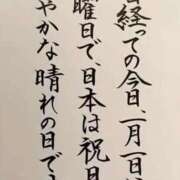 経っての今日、一月一日は
曜日で、日本は祝日
やかな晴れの日です